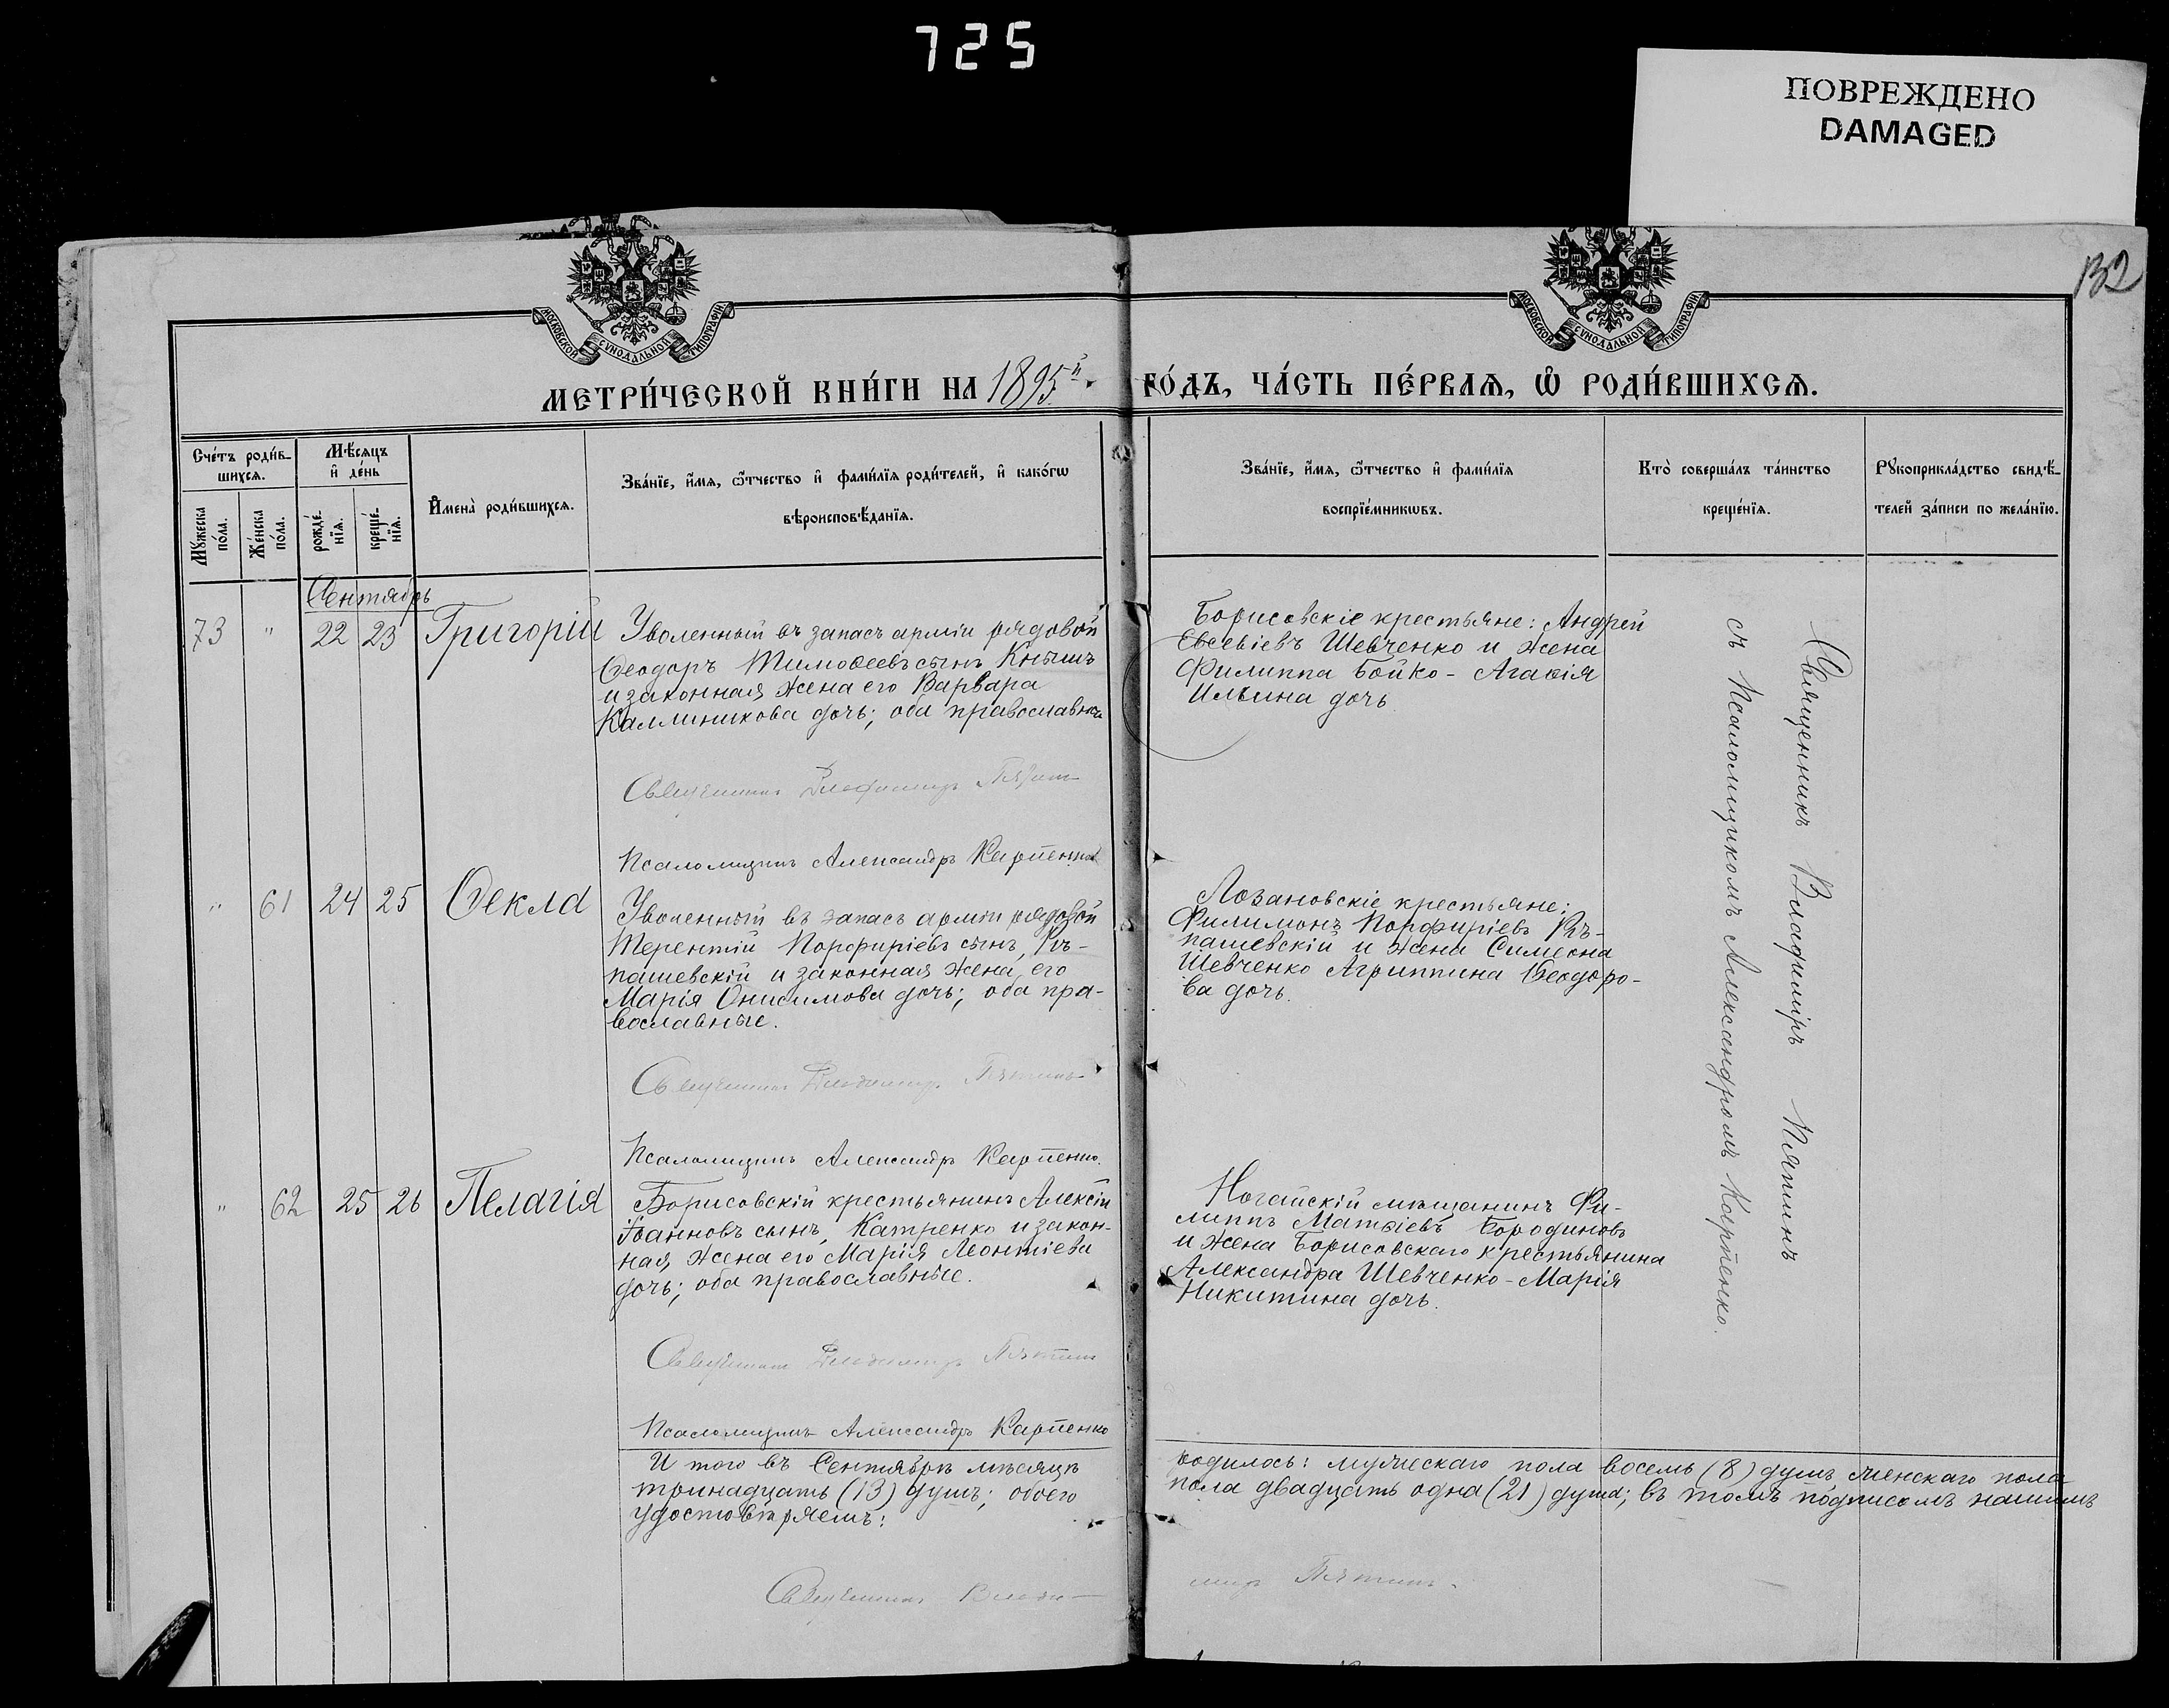 725
ПОВРЕЖДЕНО
DAMAGED
132
МОСКОВСКОЙ СѴНОДАЛЬНОЙ ТИПОГРАФІИ
МОСКОВСКОЙ СѴНОДАЛЬНОЙ ТИПОГРАФІИ
МЕТРИ́ЧЕСКОЙ КНИ́ГИ НА 1895й ГО́ДЪ, ЧА́СТЬ ПЕ́РВАѦ, Ѡ҆ РОДИ́ВШИХСѦ.
Сче́тъ роди́в-
шихсѧ.
Мꙋ́жеска
по́ла.
Же́нска
по́ла.
Мѣ́сѧцъ
и҆ де́нь
рожде́-
нїѧ.
креще́-
нїѧ.
И҆мена̀ роди́вшихсѧ.
Зва́нїе, и҆́мѧ, ѻ҆́тчество и҆ фами́лїѧ роди́телей, и҆ како́гѡ
вѣроисповѣ́данїѧ.
Зва́нїе, и҆́мѧ, ѻ҆́тчество и҆ фами́лїѧ
воспрїе́мникѡвъ.
Кто̀ соверша́лъ та́инство
креще́нїѧ.
Рꙋкоприкла́дство свидѣ́-
телей за́писи по жела́нїю.
Сентябрь
73 " 22 23 Григорій
Уволенный въ запасъ арміи рядовой
Ѳеодоръ Тимоѳеевъ сынъ Кнышъ
и законная жена его Варвара
Каллиникова дочь; оба православные
Священникъ Владиміръ Пятинъ
Псаломщикъ Александръ Карпенко
Борисовскіе крестьяне: Андрей
Евсевіевъ Шевченко и жена
Филиппа Бойко - Агаѳія
Ильина дочь
" 61 24 25 Ѳекла
Уволенный въ запасъ арміи рядовой
Терентій Порфиріевъ сынъ, Рѣ-
пашевскій и законная жена его
Марія Онисимова дочь; оба пра-
вославные.
Священникъ Владиміръ Пятинъ
Псаломщикъ Александръ Карпенко.
Лозановскіе крестьяне:
Филимонъ Порфиріевъ Рѣ-
пашевскій и жена Симеона
Шевченко Агриппина Ѳеодоро-
ва дочь.
" 62 25 26 Пелагія
Борисовскій крестьянинъ Алексій
Іоанновъ сынъ, Катренко и закон-
ная жена его Марія Леонтіева
дочь; оба православные.
Священникъ Владиміръ Пятинъ
Псаломщикъ Александръ Карпенко
Ногайскій мѣщанинъ Фи-
липпъ Матѳіевъ Бородиновъ
и жена Борисовскаго крестьянина
Александра Шевченко - Марія
Никитина дочь.
Священникъ Владиміръ Пятинъ
съ Псаломщикомъ Александромъ Карпенко.
И того въ Сентябрѣ мѣсяцѣ родилось: мужескаго пола восемь (8) душъ женскаго пола
тринадцать (13) душъ; обоего пола двадцать одна (21) душа; въ томъ подписомъ нашимъ
удостовѣряемъ:
Священникъ Влади- міръ Пятинъ.